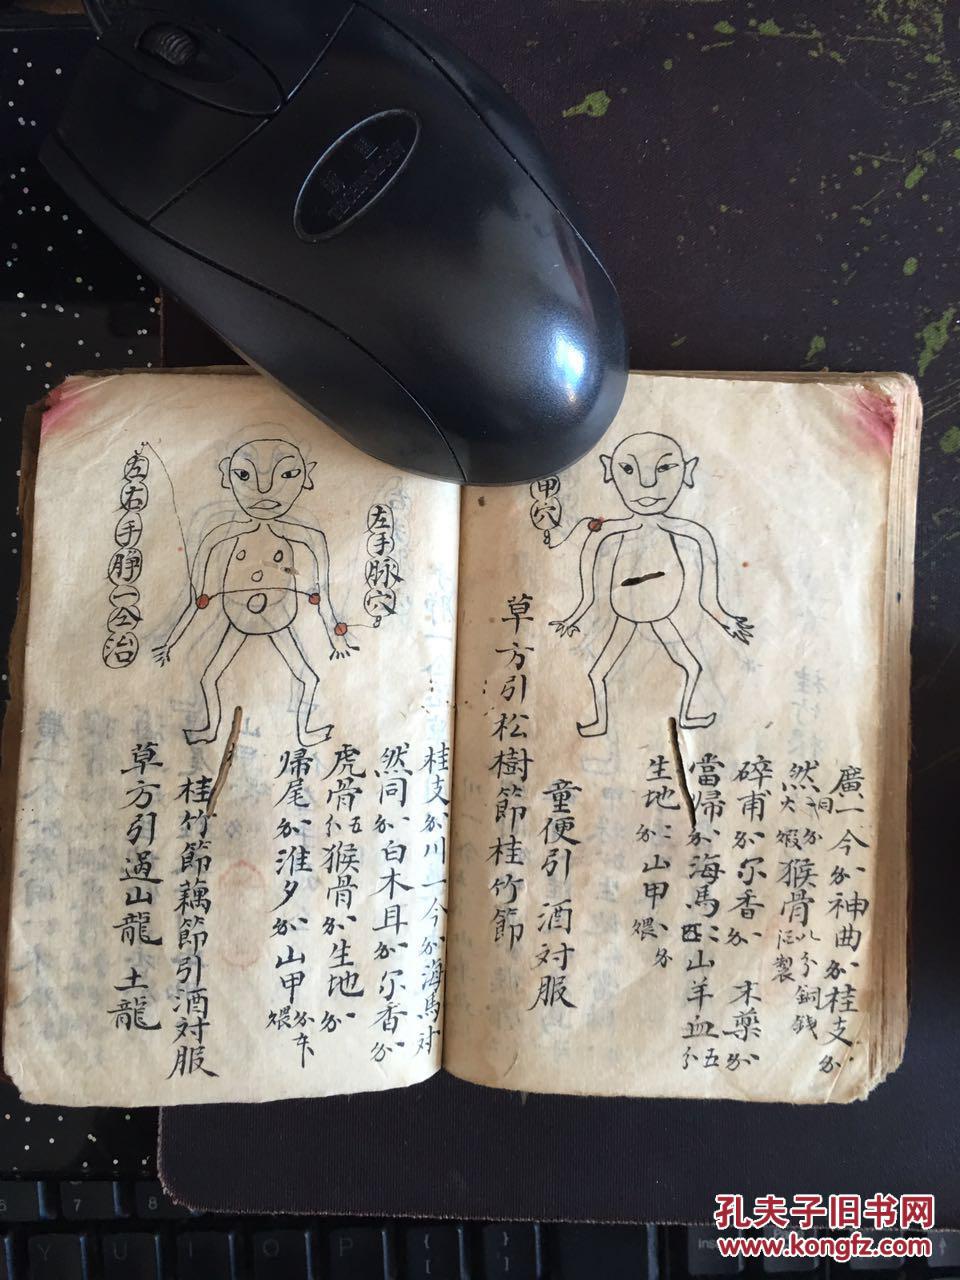 甲穴
廣一今分神曲分桂支分
然同分猴骨八分銅錢
大蝦 製
碎甫分尔香分 末藥分
當歸分海馬匹山羊血五分
生地分山甲分
童便引酒対服
草方引松樹節桂竹節
左手脉穴
左右手睜一仝治
桂支分川一今分海馬対
然同分白木耳分尔香分
虎骨五分猴骨分生地分
歸尾分淮夕分山甲分
桂竹節藕節引酒対服
草方引過山龍 土龍
孔夫子旧书网
www.kongfz.com